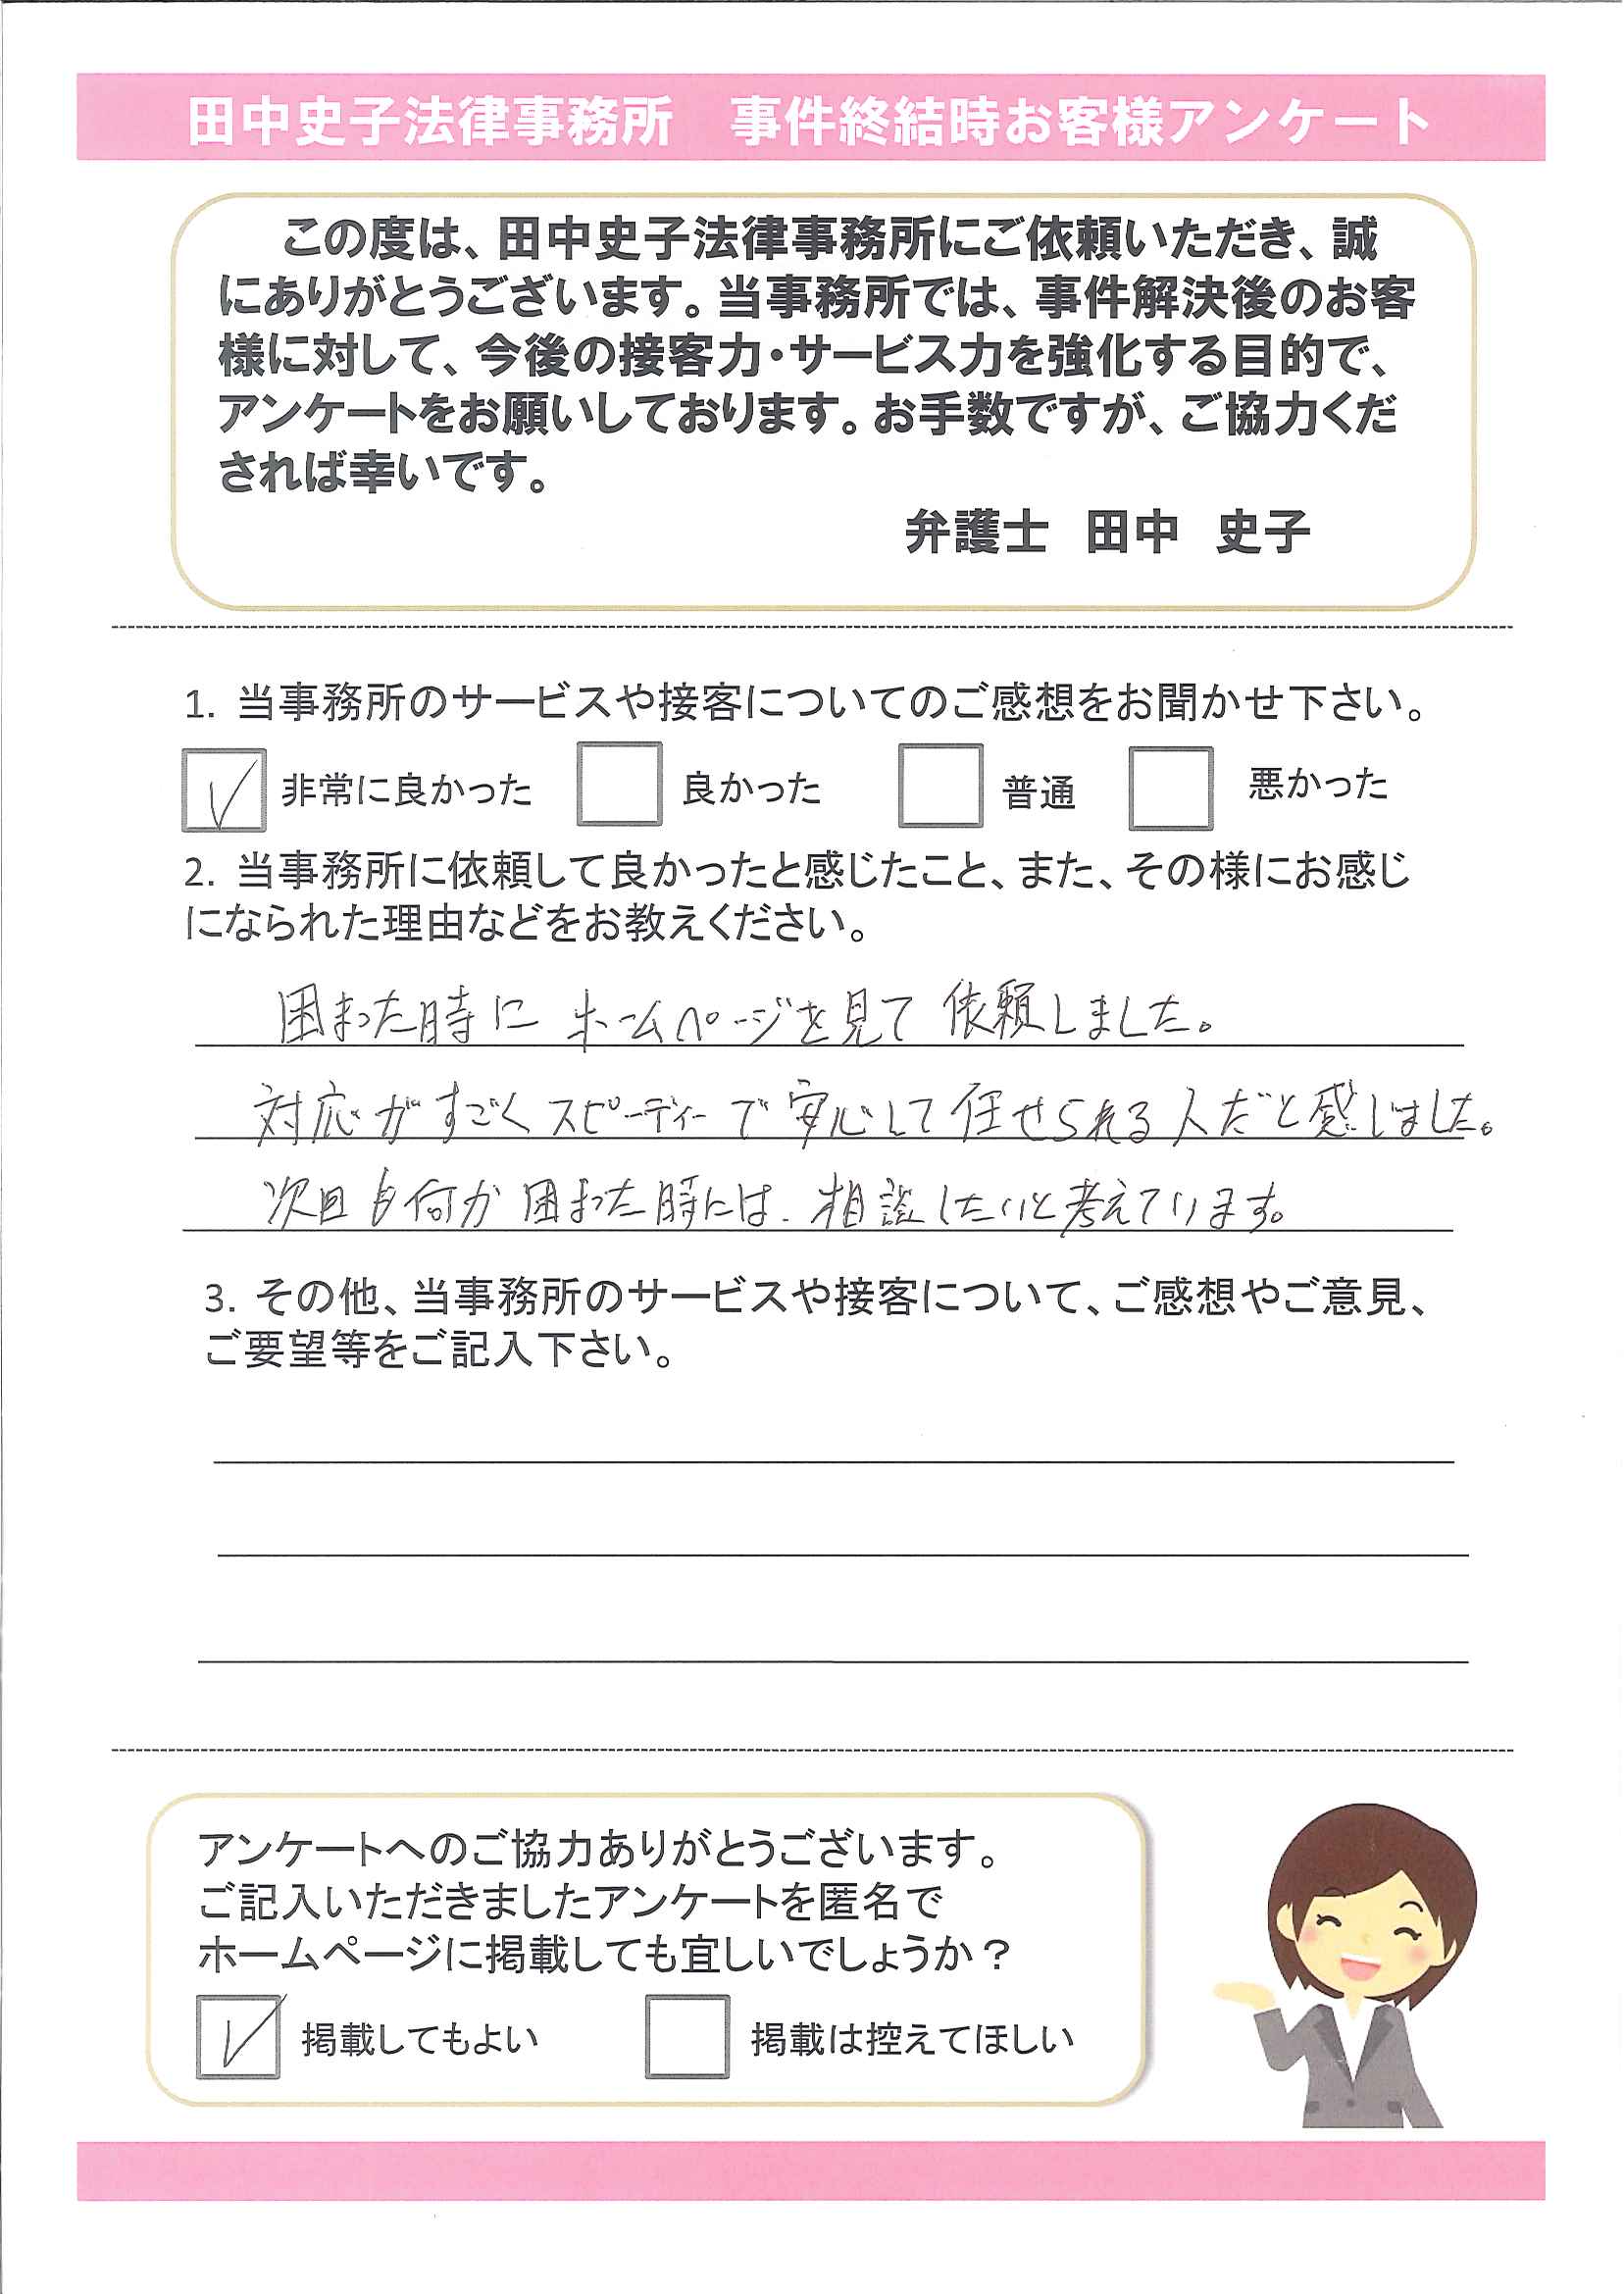 田中史子法律事務所　事件終結時お客様アンケート
この度は、田中史子法律事務所にご依頼いただき、誠
にありがとうございます。当事務所では、事件解決後のお客
様に対して、今後の接客力・サービス力を強化する目的で、
アンケートをお願いしております。お手数ですが、ご協力くだ
されば幸いです。
弁護士　田中　史子
1. 当事務所のサービスや接客についてのご感想をお聞かせ下さい。
非常に良かった　良かった　普通　悪かった
2. 当事務所に依頼して良かったと感じたこと、また、その様にお感じ
になられた理由などをお教えください。
困まった時に ホームページを見て 依頼しました。
対応がすごくスピーディーで安心して任せられる人だと感じました。
次回も何か困まった時には、相談したいと考えています。
3. その他、当事務所のサービスや接客について、ご感想やご意見、
ご要望等をご記入下さい。
アンケートへのご協力ありがとうございます。
ご記入いただきましたアンケートを匿名で
ホームページに掲載しても宜しいでしょうか？
掲載してもよい　掲載は控えてほしい